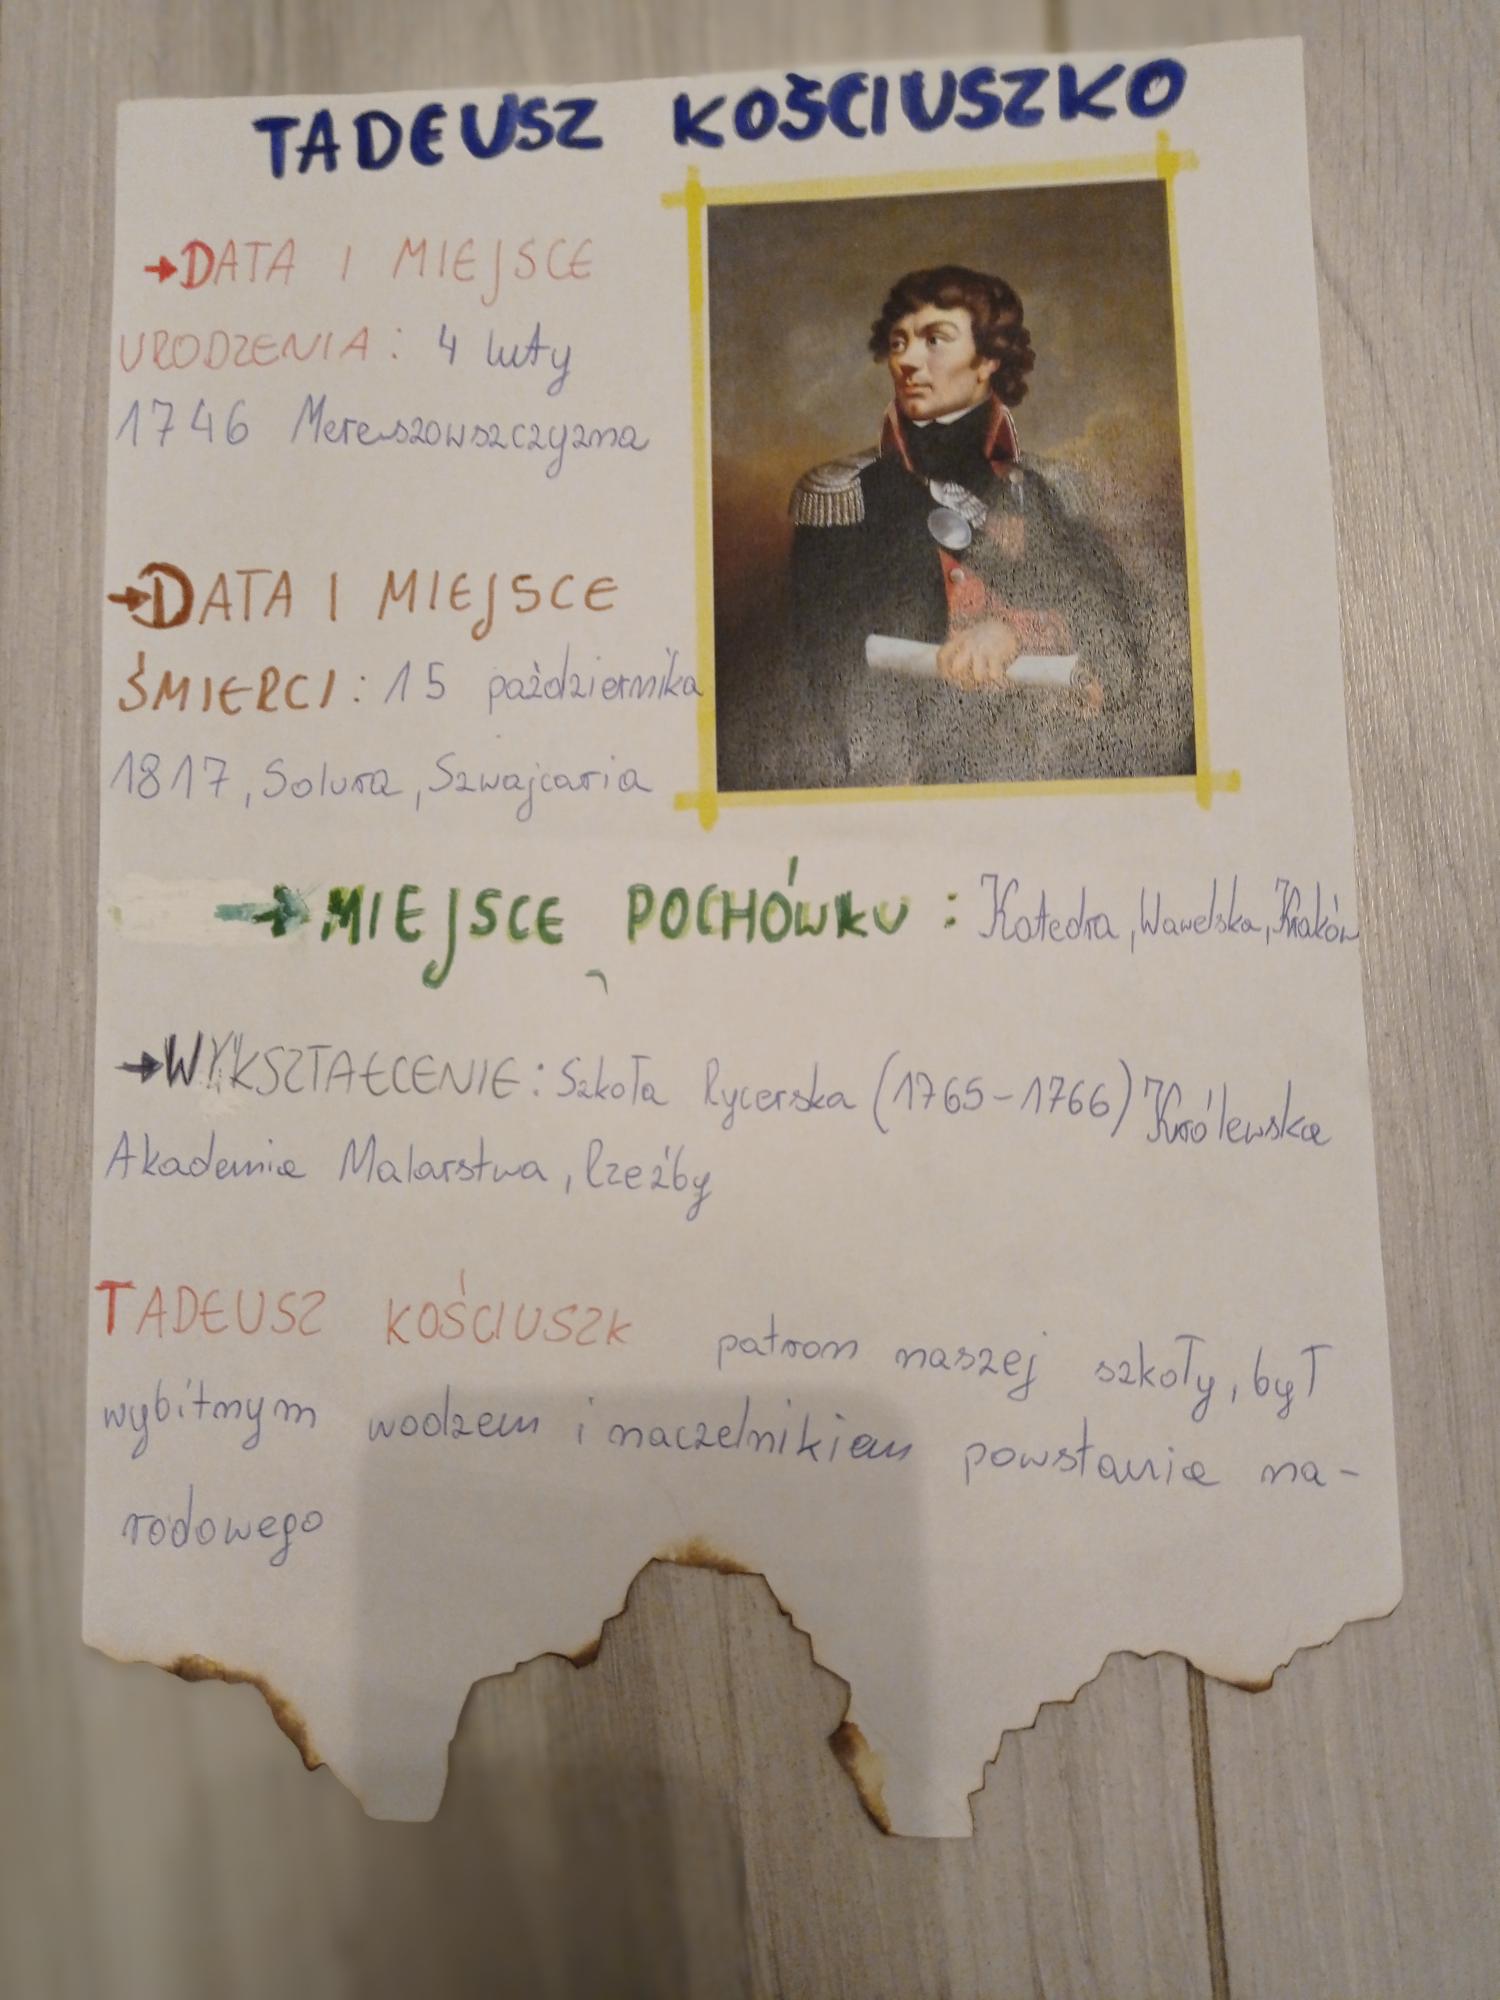 TADEUSZ KOŚCIUSZKO
→DATA I MIEJSCE
URODZENIA: 4 luty
1746 Mereszowszczyzna
→DATA I MIEJSCE
ŚMIERCI: 15 października
1817, Solura, Szwajcaria
→MIEJSCE POCHÓWKU: Katedra, Wawelska, Kraków
→WYKSZTAŁCENIE: Szkoła Rycerska (1765-1766) Królewska
Akademia Malarstwa, Rzeźby
TADEUSZ KOŚCIUSZK patron naszej szkoły, był
wybitnym wodzem i naczelnikiem powstania na-
rodowego